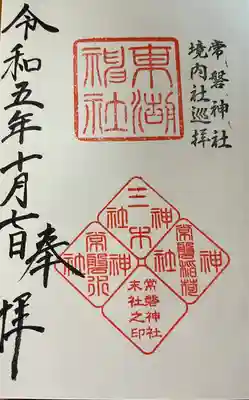 常磐神社
境内社巡拝
東湖
神社
三木
神社
常磐稲荷
神社
常磐水
神社
常磐神社
末社之印
奉拝
令和五年十月七日